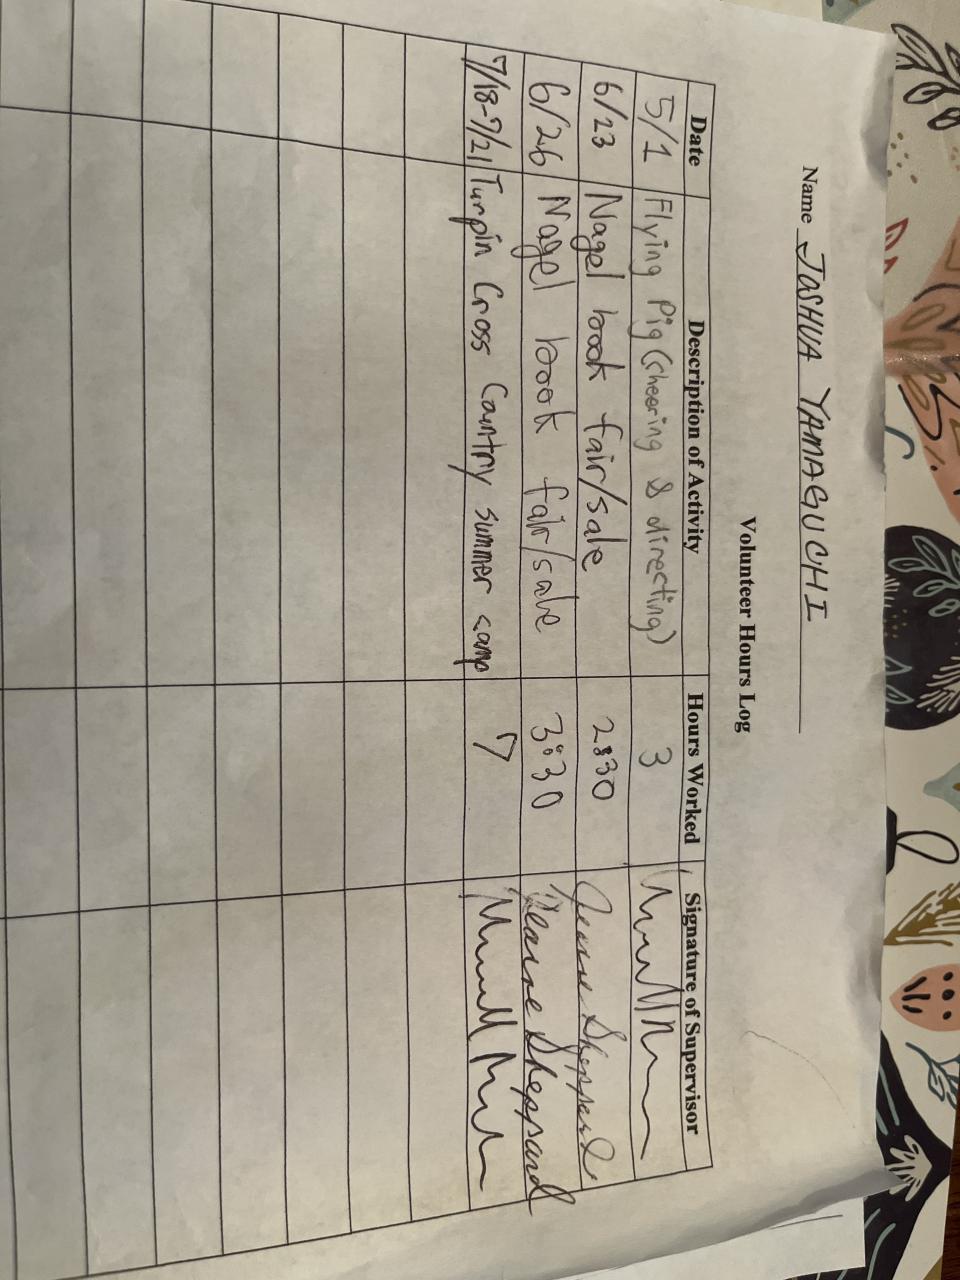 Name JOSHUA YAMAGUCHI
Volunteer Hours Log
Date Description of Activity Hours Worked Signature of Supervisor
5/1 Flying Pig (cheering & directing) 3
6/23 Nagel book fair/sale 2:30 Jeanne Sheppard
6/26 Nagel book fair/sale 3:30 Jeanne Sheppard
7/18-7/21 Turpin Cross Country summer camp 7